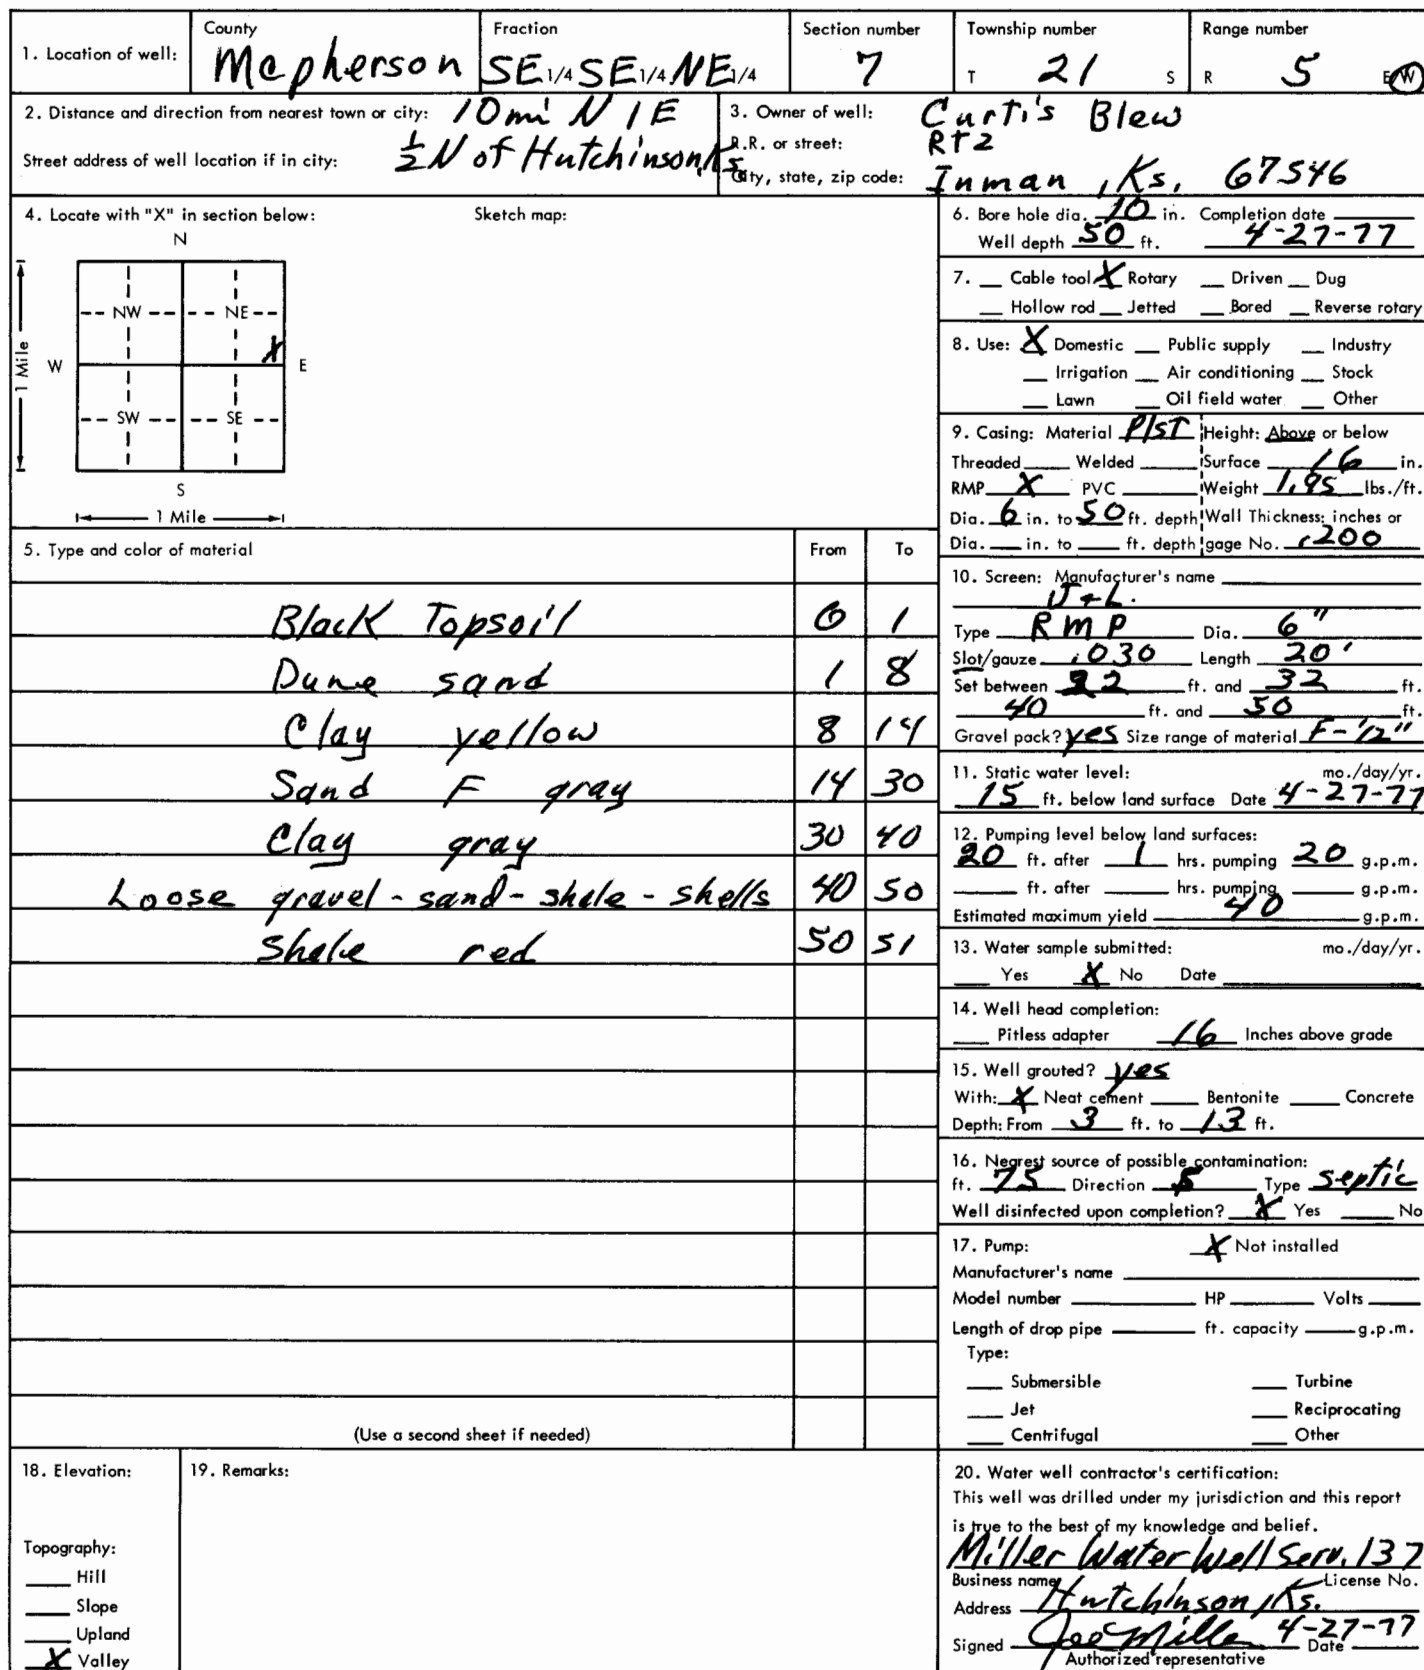 1. Location of well: County Mcpherson Fraction SE 1/4 SE 1/4 NE 1/4 Section number 7 Township number T 21 S Range number R 5 E/W
2. Distance and direction from nearest town or city: 10 mi N 1 E
Street address of well location if in city: ½ N of Hutchinson, Ks
3. Owner of well: Curtis Blew
R.R. or street: RT 2
City, state, zip code: Inman, Ks. 67546
4. Locate with "X" in section below: Sketch map:
N
NW NE
X
1 Mile W E
SW SE
S
1 Mile
5. Type and color of material From To
Black Topsoil 0 1
Dune sand 1 8
Clay yellow 8 14
Sand F gray 14 30
Clay gray 30 40
Loose gravel - sand - shale - shells 40 50
Shale red 50 51
(Use a second sheet if needed)
6. Bore hole dia. 10 in. Completion date
Well depth 50 ft. 4-27-77
7. Cable tool X Rotary Driven Dug
Hollow rod Jetted Bored Reverse rotary
8. Use: X Domestic Public supply Industry
Irrigation Air conditioning Stock
Lawn Oil field water Other
9. Casing: Material Plst Height: Above or below
Threaded Welded Surface 16 in.
RMP X PVC Weight 1.95 lbs./ft.
Dia. 6 in. to 50 ft. depth Wall Thickness: inches or
Dia. in. to ft. depth gage No. .200
10. Screen: Manufacturer's name
J + L.
Type RMP Dia. 6"
Slot/gauze .030 Length 20'
Set between 22 ft. and 32 ft.
40 ft. and 50 ft.
Gravel pack? yes Size range of material F-1/2"
11. Static water level: mo./day/yr.
15 ft. below land surface Date 4-27-77
12. Pumping level below land surfaces:
20 ft. after 1 hrs. pumping 20 g.p.m.
ft. after hrs. pumping g.p.m.
Estimated maximum yield 40 g.p.m.
13. Water sample submitted: mo./day/yr.
Yes X No Date
14. Well head completion:
Pitless adapter 16 Inches above grade
15. Well grouted? yes
With: X Neat cement Bentonite Concrete
Depth: From 3 ft. to 13 ft.
16. Nearest source of possible contamination:
ft. 75 Direction S Type septic
Well disinfected upon completion? X Yes No
17. Pump: X Not installed
Manufacturer's name
Model number HP Volts
Length of drop pipe ft. capacity g.p.m.
Type:
Submersible Turbine
Jet Reciprocating
Centrifugal Other
18. Elevation:
Topography:
Hill
Slope
Upland
X Valley
19. Remarks:
20. Water well contractor's certification:
This well was drilled under my jurisdiction and this report
is true to the best of my knowledge and belief.
Miller Water Well Serv. 137
Business name License No.
Address Hutchinson, Ks.
Signed Joe Miller 4-27-77 Date
Authorized representative